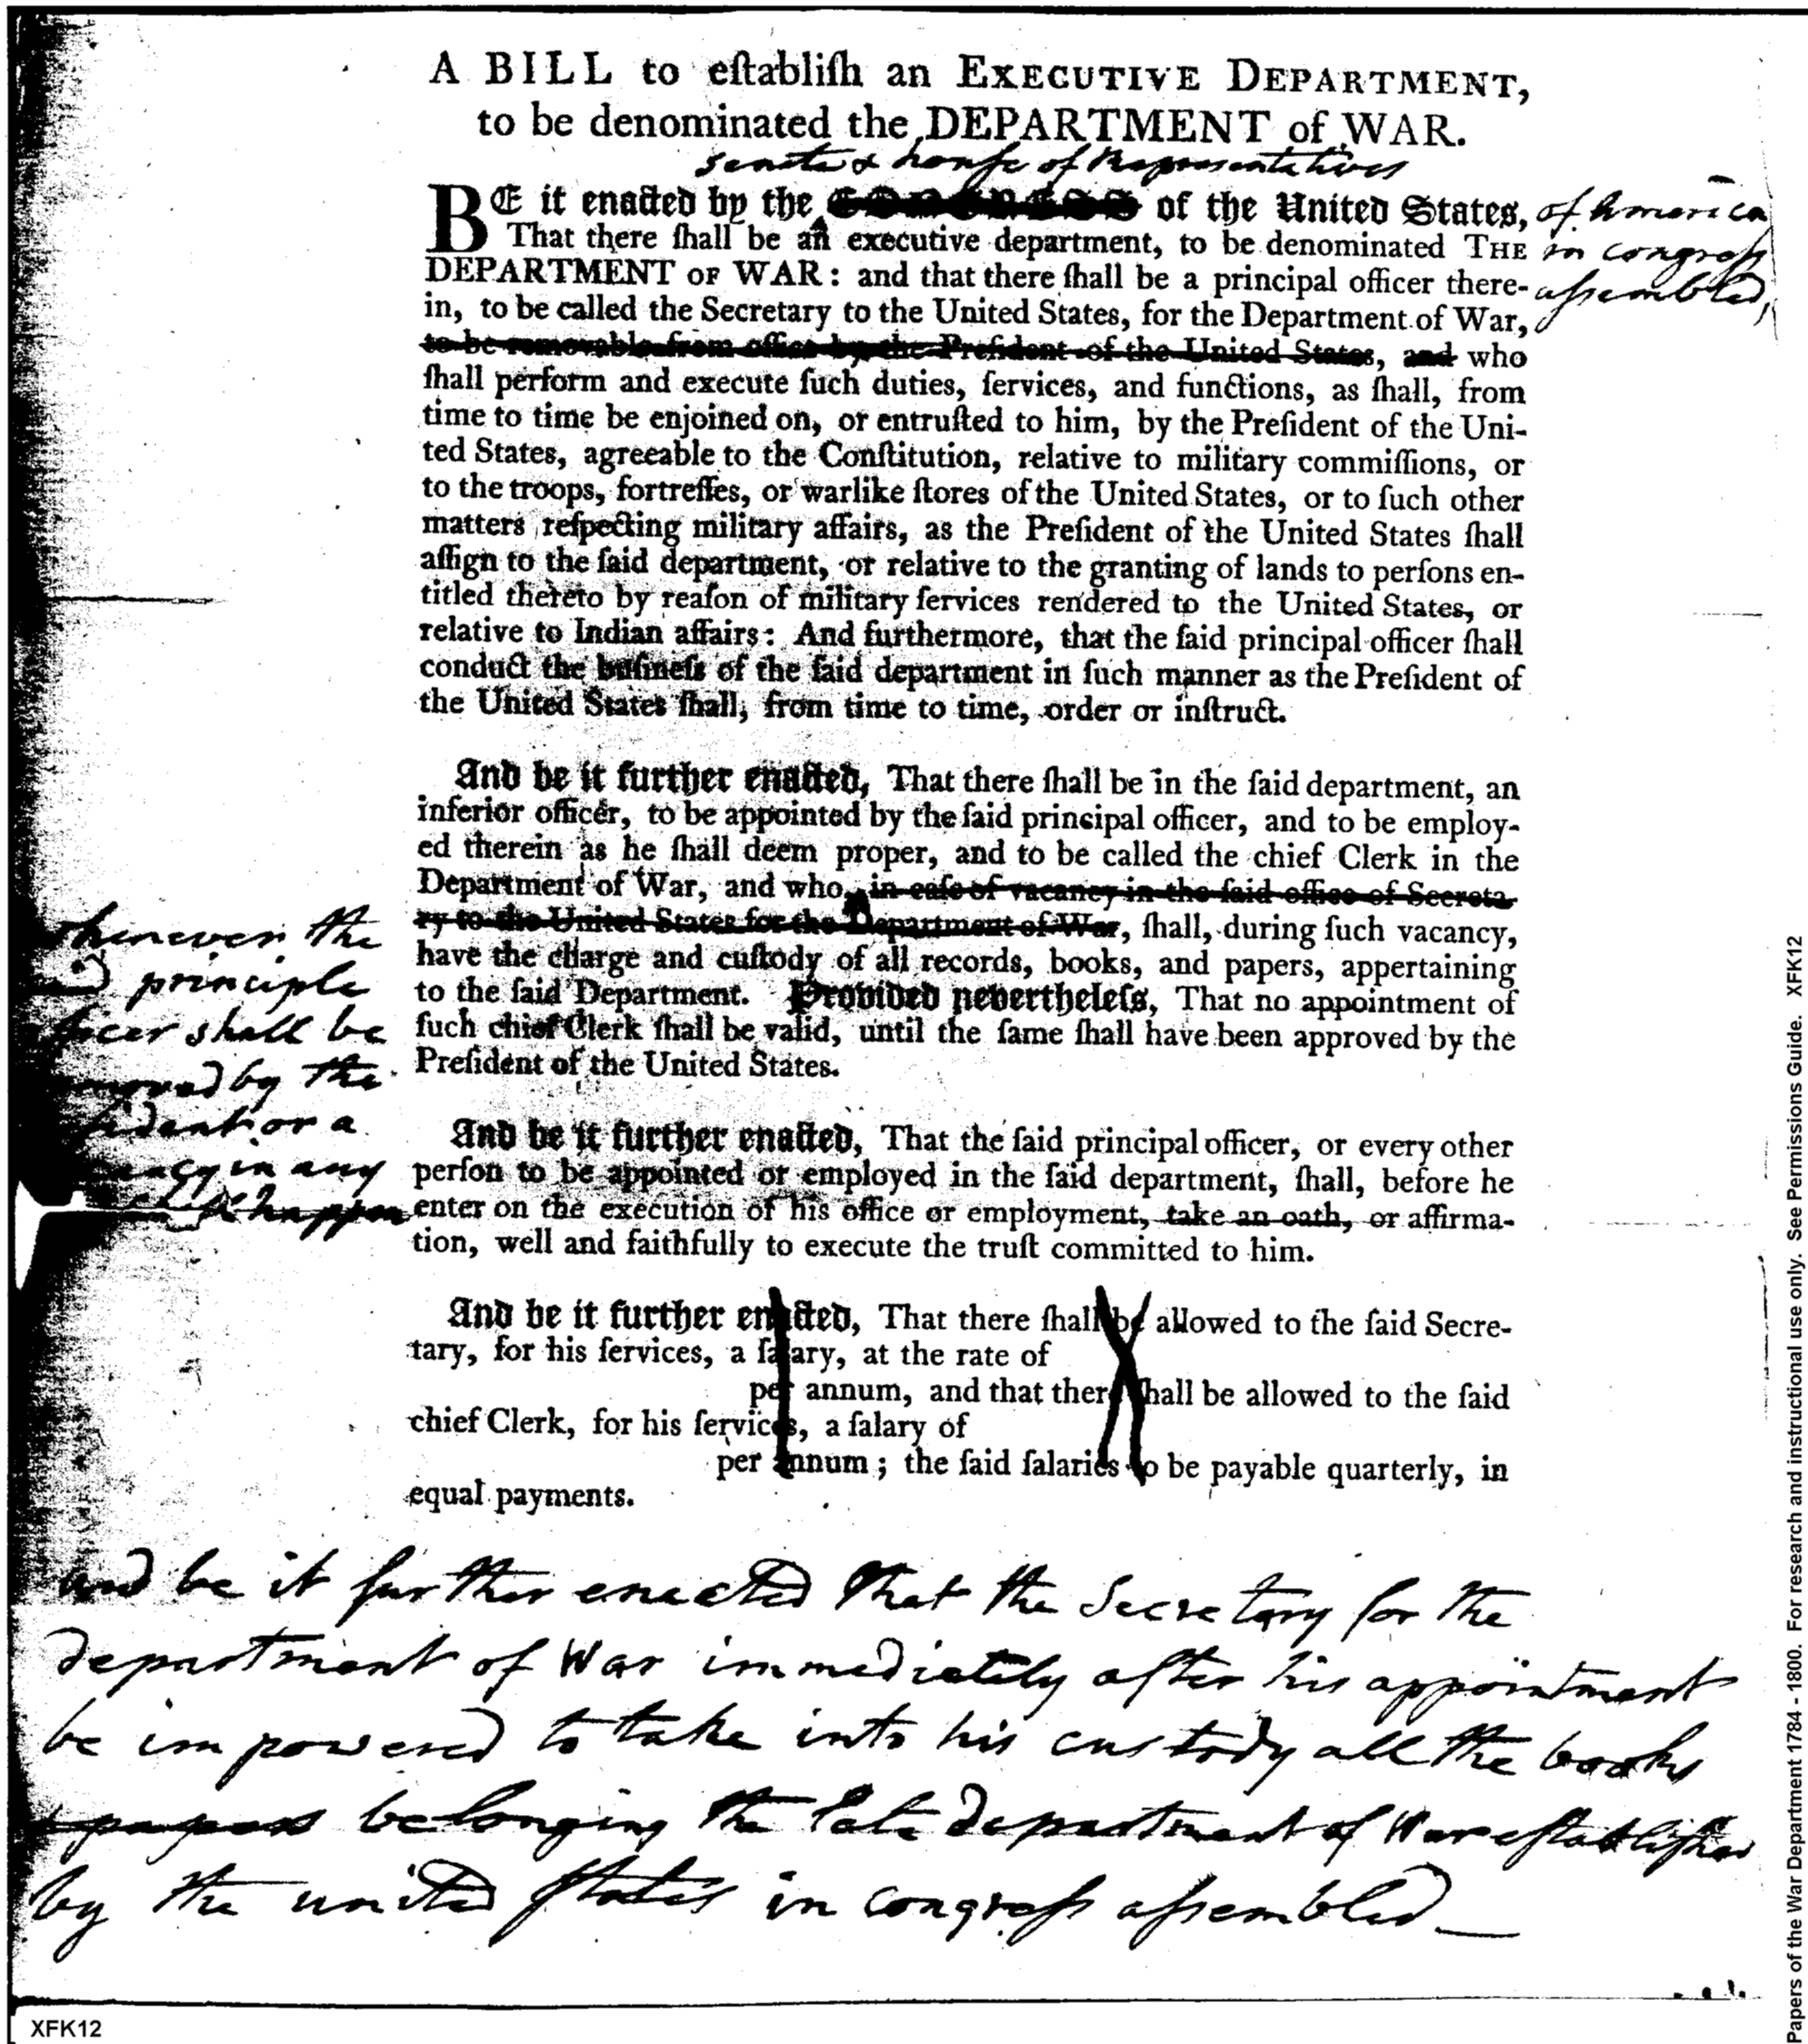 A BILL to eſtabliſh an EXECUTIVE DEPARTMENT,
to be denominated the DEPARTMENT of WAR.
senate & houſe of Representatives
BE it enacted by the CONGRESS of the United States, of America
That there ſhall be an executive department, to be denominated THE in congreſs
DEPARTMENT OF WAR: and that there ſhall be a principal officer there- aſsembled,
in, to be called the Secretary to the United States, for the Department of War,
to be removable from office by the Preſident of the United States, and who
ſhall perform and execute ſuch duties, ſervices, and functions, as ſhall, from
time to time be enjoined on, or entruſted to him, by the Preſident of the Uni-
ted States, agreeable to the Conſtitution, relative to military commiſſions, or
to the troops, fortreſſes, or warlike ſtores of the United States, or to ſuch other
matters reſpecting military affairs, as the Preſident of the United States ſhall
aſſign to the ſaid department, or relative to the granting of lands to perſons en-
titled thereto by reaſon of military ſervices rendered to the United States, or
relative to Indian affairs: And furthermore, that the ſaid principal officer ſhall
conduct the buſineſs of the ſaid department in ſuch manner as the Preſident of
the United States ſhall, from time to time, order or inſtruct.
And be it further enacted, That there ſhall be in the ſaid department, an
inferior officer, to be appointed by the ſaid principal officer, and to be employ-
ed therein as he ſhall deem proper, and to be called the chief Clerk in the
Department of War, and who, in caſe of vacancy in the ſaid office of Secreta-
ry to the United States for the Department of War, ſhall, during ſuch vacancy,
have the charge and cuſtody of all records, books, and papers, appertaining
to the ſaid Department. Provided nevertheleſs, That no appointment of
ſuch chief Clerk ſhall be valid, until the ſame ſhall have been approved by the
Preſident of the United States.
whenever the
principle
shall be
by the
or a
in any
happen
And be it further enacted, That the ſaid principal officer, or every other
perſon to be appointed or employed in the ſaid department, ſhall, before he
enter on the execution of his office or employment, take an oath, or affirma-
tion, well and faithfully to execute the truſt committed to him.
And be it further enacted, That there ſhall be allowed to the ſaid Secre-
tary, for his ſervices, a ſalary, at the rate of
per annum, and that there ſhall be allowed to the ſaid
chief Clerk, for his ſervices, a ſalary of
per annum; the ſaid ſalaries to be payable quarterly, in
equal payments.
and be it further enacted that the Secretary for the
department of War immediately after his appointment
be impowered to take into his custody all the books
& papers belonging the late department of War eſtabliſhed
by the united ſtates in congreſs aſsembled
XFK12
Papers of the War Department 1784 - 1800. For research and instructional use only. See Permissions Guide. XFK12